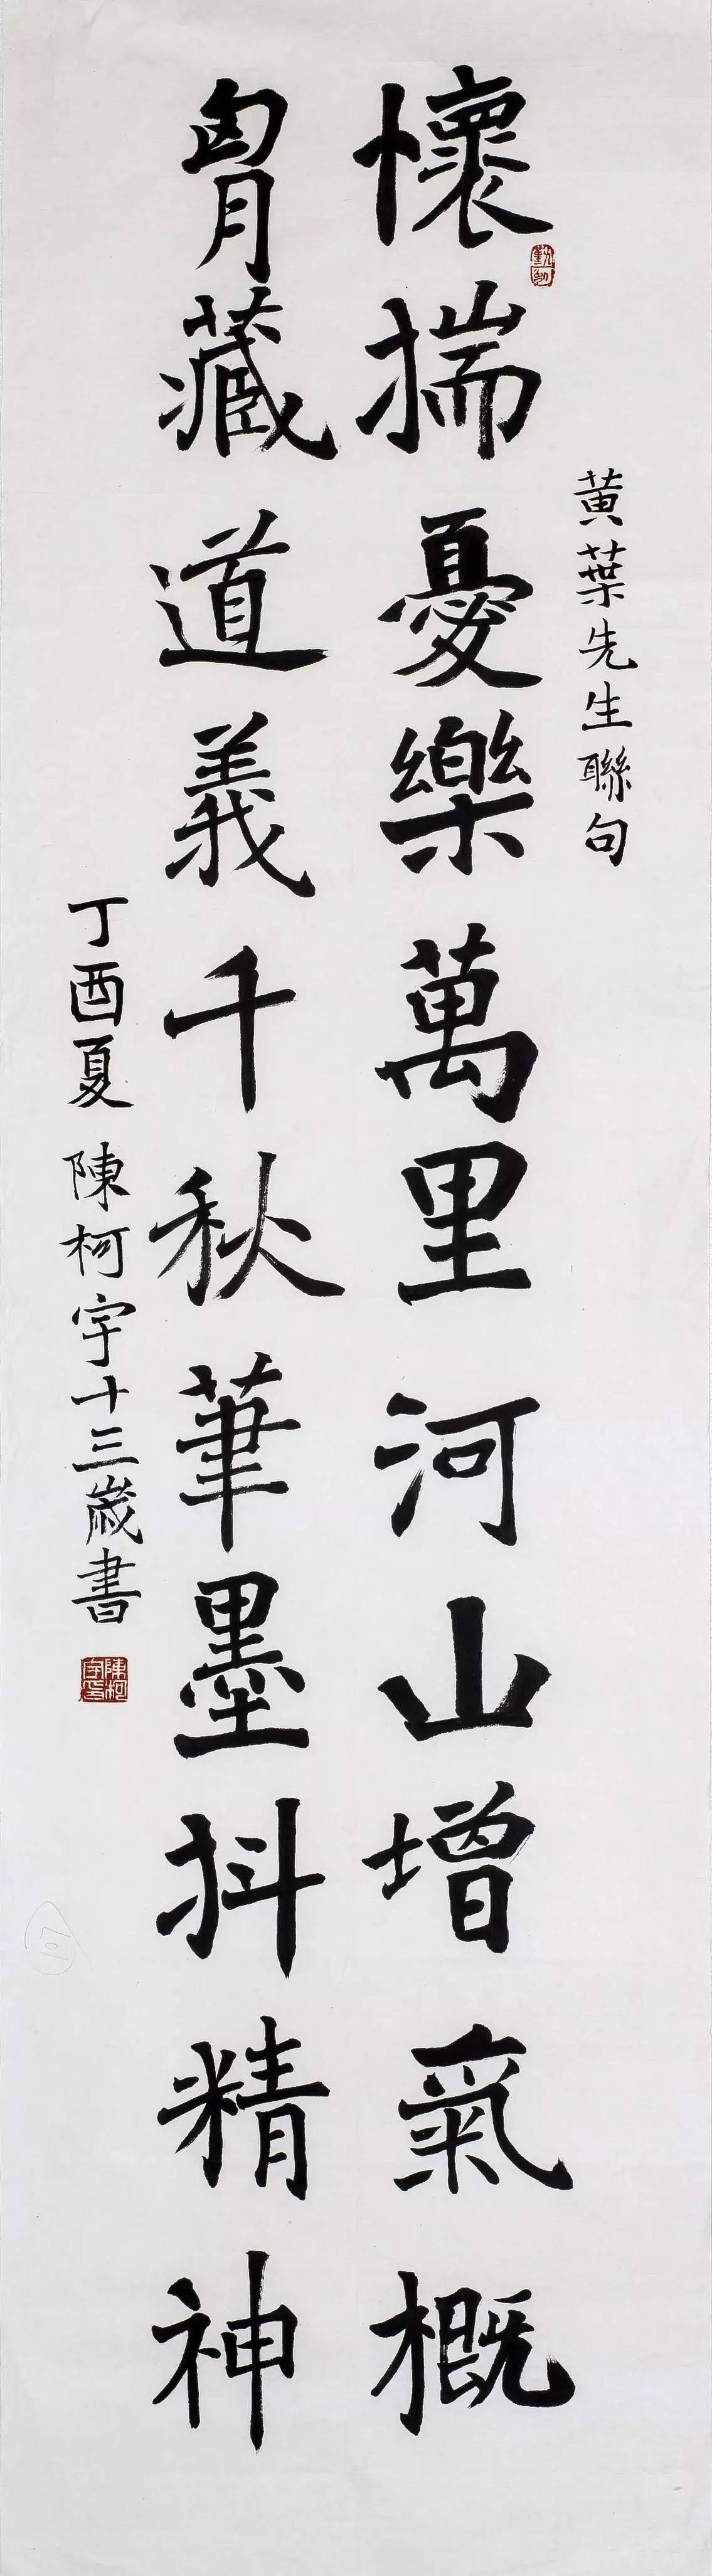 黃葉先生聯句
懷揣憂樂萬里河山增氣概
胷藏道義千秋筆墨抖精神
丁酉夏 陳柯宇十三歲書
陳柯宇印